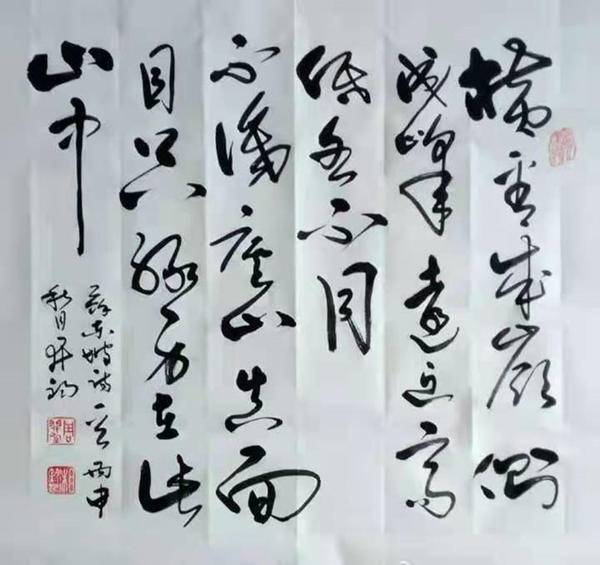 横看成岭侧
成峰远近高
低各不同
不识庐山真面
目只缘身在此
山中
苏东坡诗一首 丙申
秋月